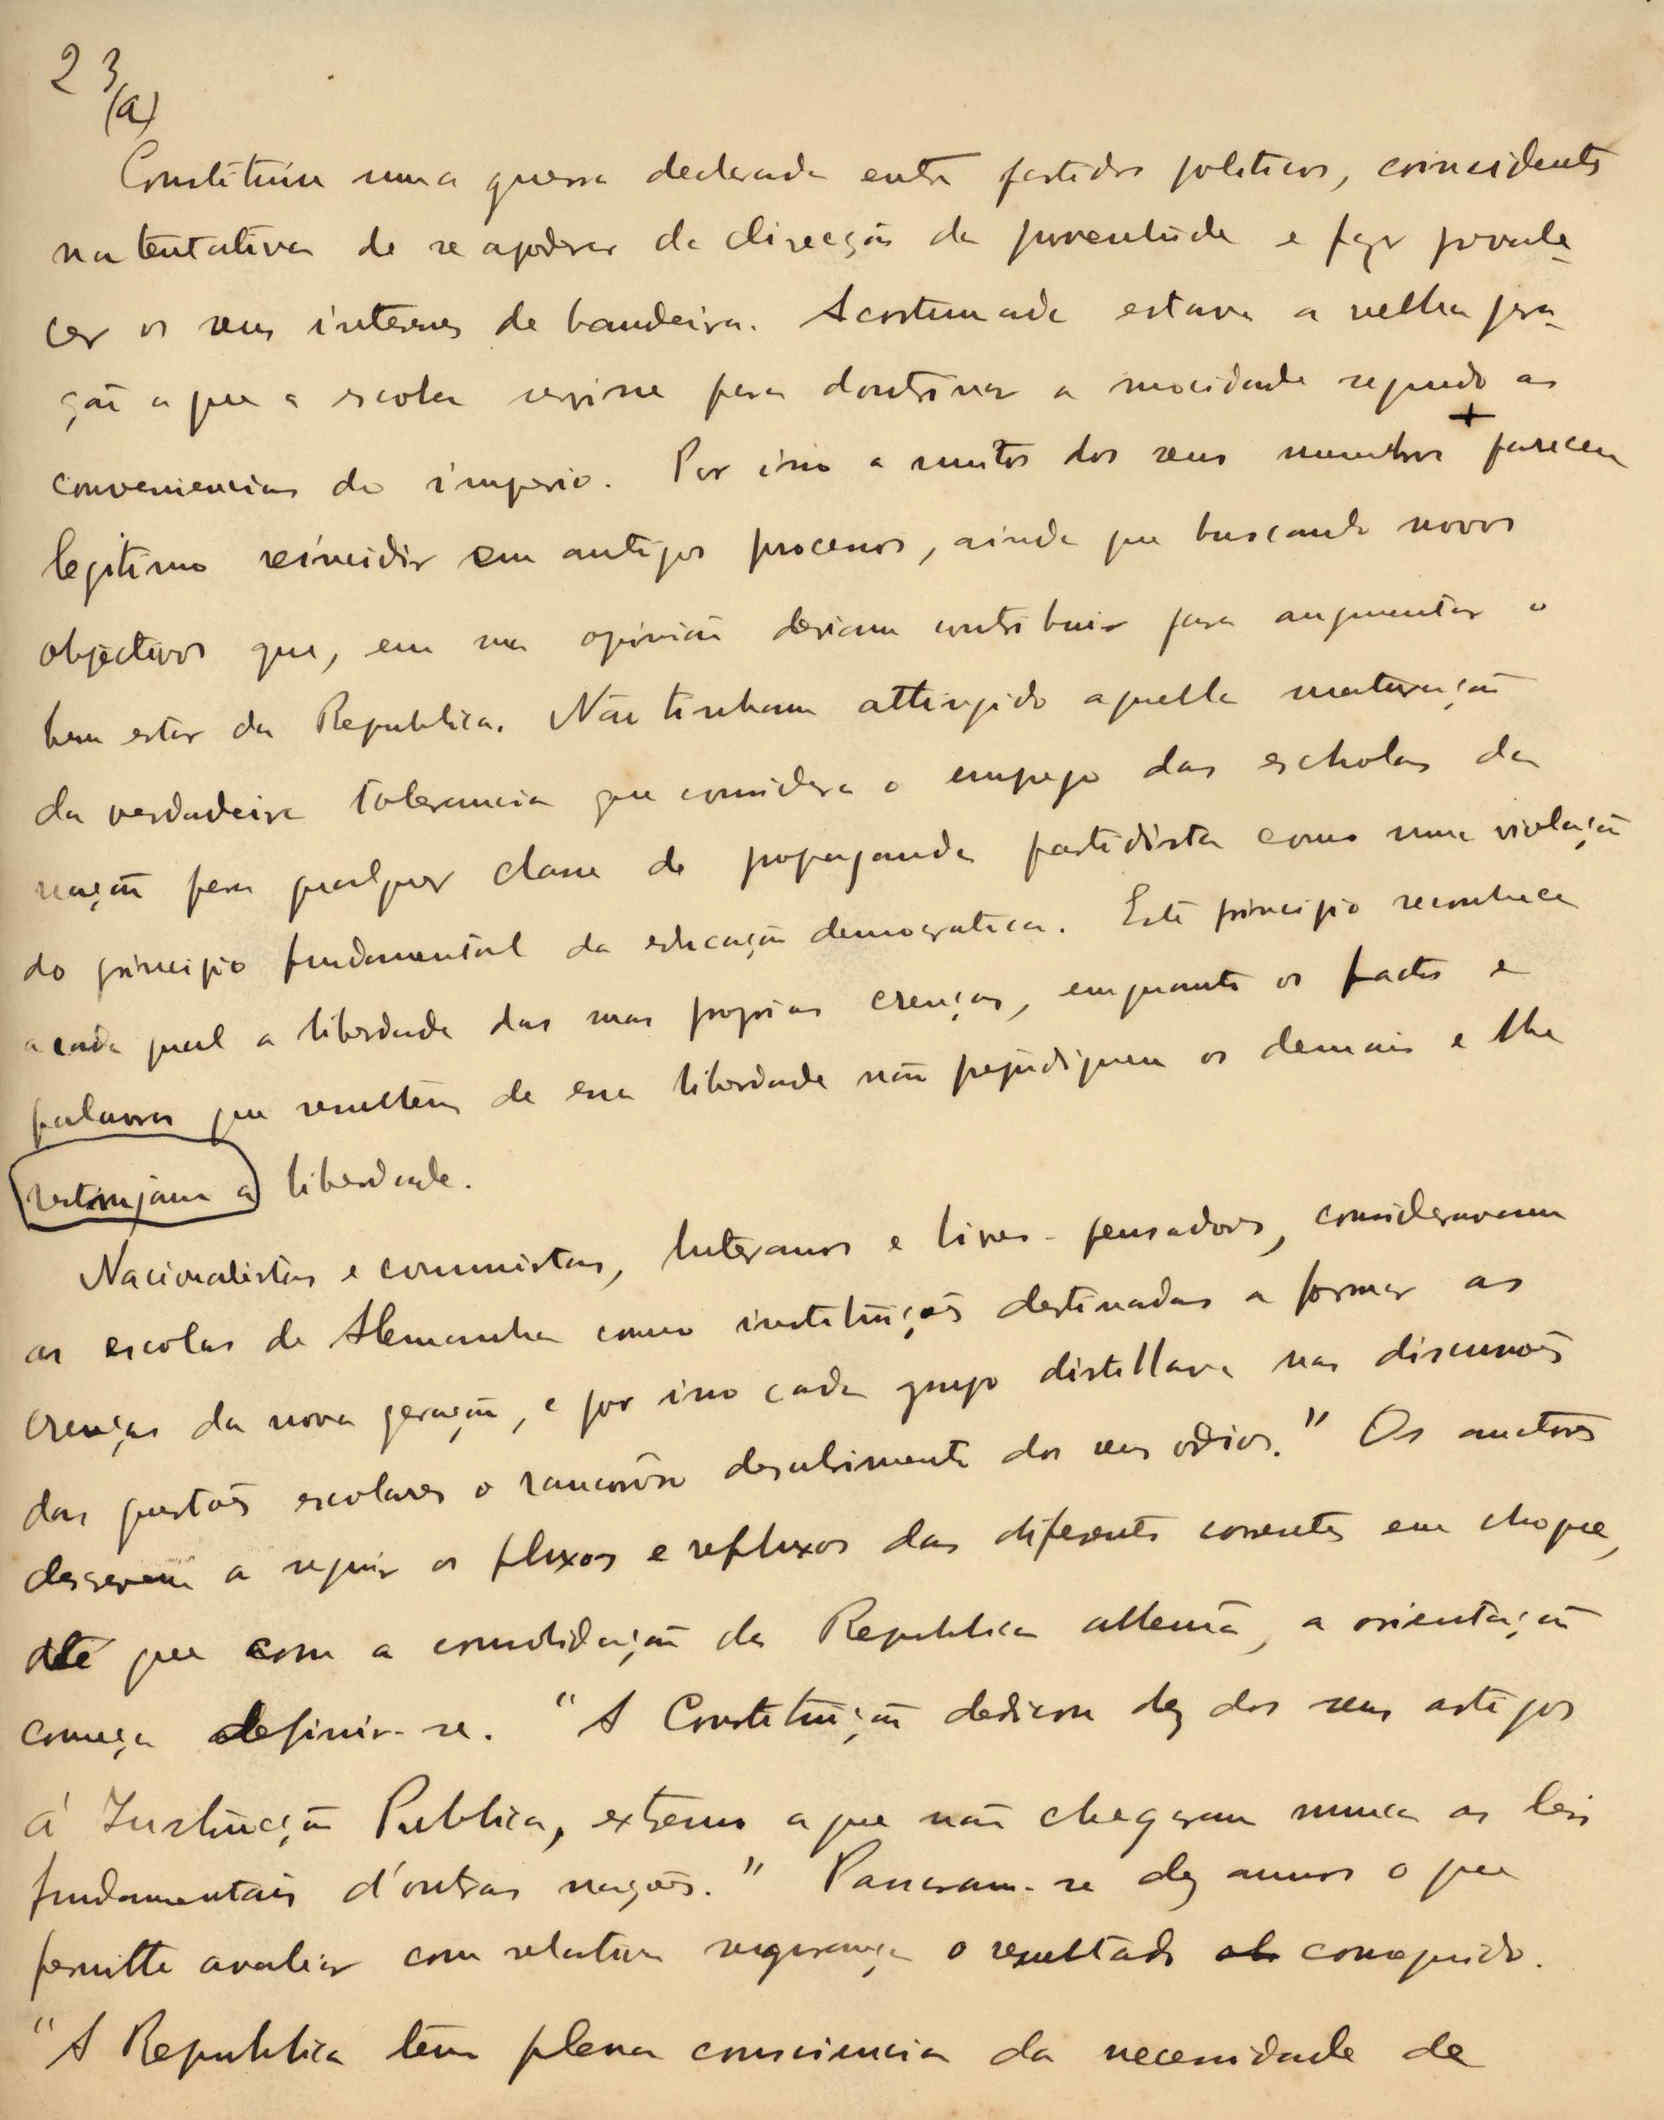 23
(a)
Constituiu uma guerra declarada entre partidos politicos, coincidentes
na tentativa de se apoderar da direcção da juventude e fazer prevale-
cer os seus interesses de bandeira. Acostumada estava a velha gera-
ção a que a escola servisse para doutrinar a mocidade segundo as
conveniencias do imperio. Por isso a muitos dos seus membros + pareceu
legitimo reincidir em antigos processos, ainda que buscando novos
objectivos que, em sua opinião deviam contribuir para augmentar o
bem estar da Republica. Não tinham attingido aquella maturação
da verdadeira tolerancia que considera o emprego das escholas da
nação para qualquer classe de propaganda partidista como uma violação
do principio fundamental da educação democratica. Este principio reconhece
a cada qual a liberdade das suas proprias crenças, emquanto os factos e
palavras que resultem de essa liberdade não prejudiquem os demais e lhe
restrinjam a liberdade.
Nacionalistas e communistas, luteranos e livres-pensadores, consideravam
as escolas da Alemanha como instituições destinadas a formar as
crenças da nova geração, e por isso cada grupo distillava nas discussões
das questões escolares o rancoroso desabrimento dos seus odios." Os auctores
descrevem a seguir os fluxos e refluxos das diferentes correntes em choque,
até que com a consolidação da Republica allemã, a orientação
começa definir-se. "A Constituição dedicou dez dos seus artigos
á Instrucção Publica, extremo a que não chegaram nunca as leis
fundamentais d'outras nações." Passaram-se dez annos o que
permitte avaliar com relativa segurança o resultado conseguido.
"A Republica tem plena consciencia da necessidade de